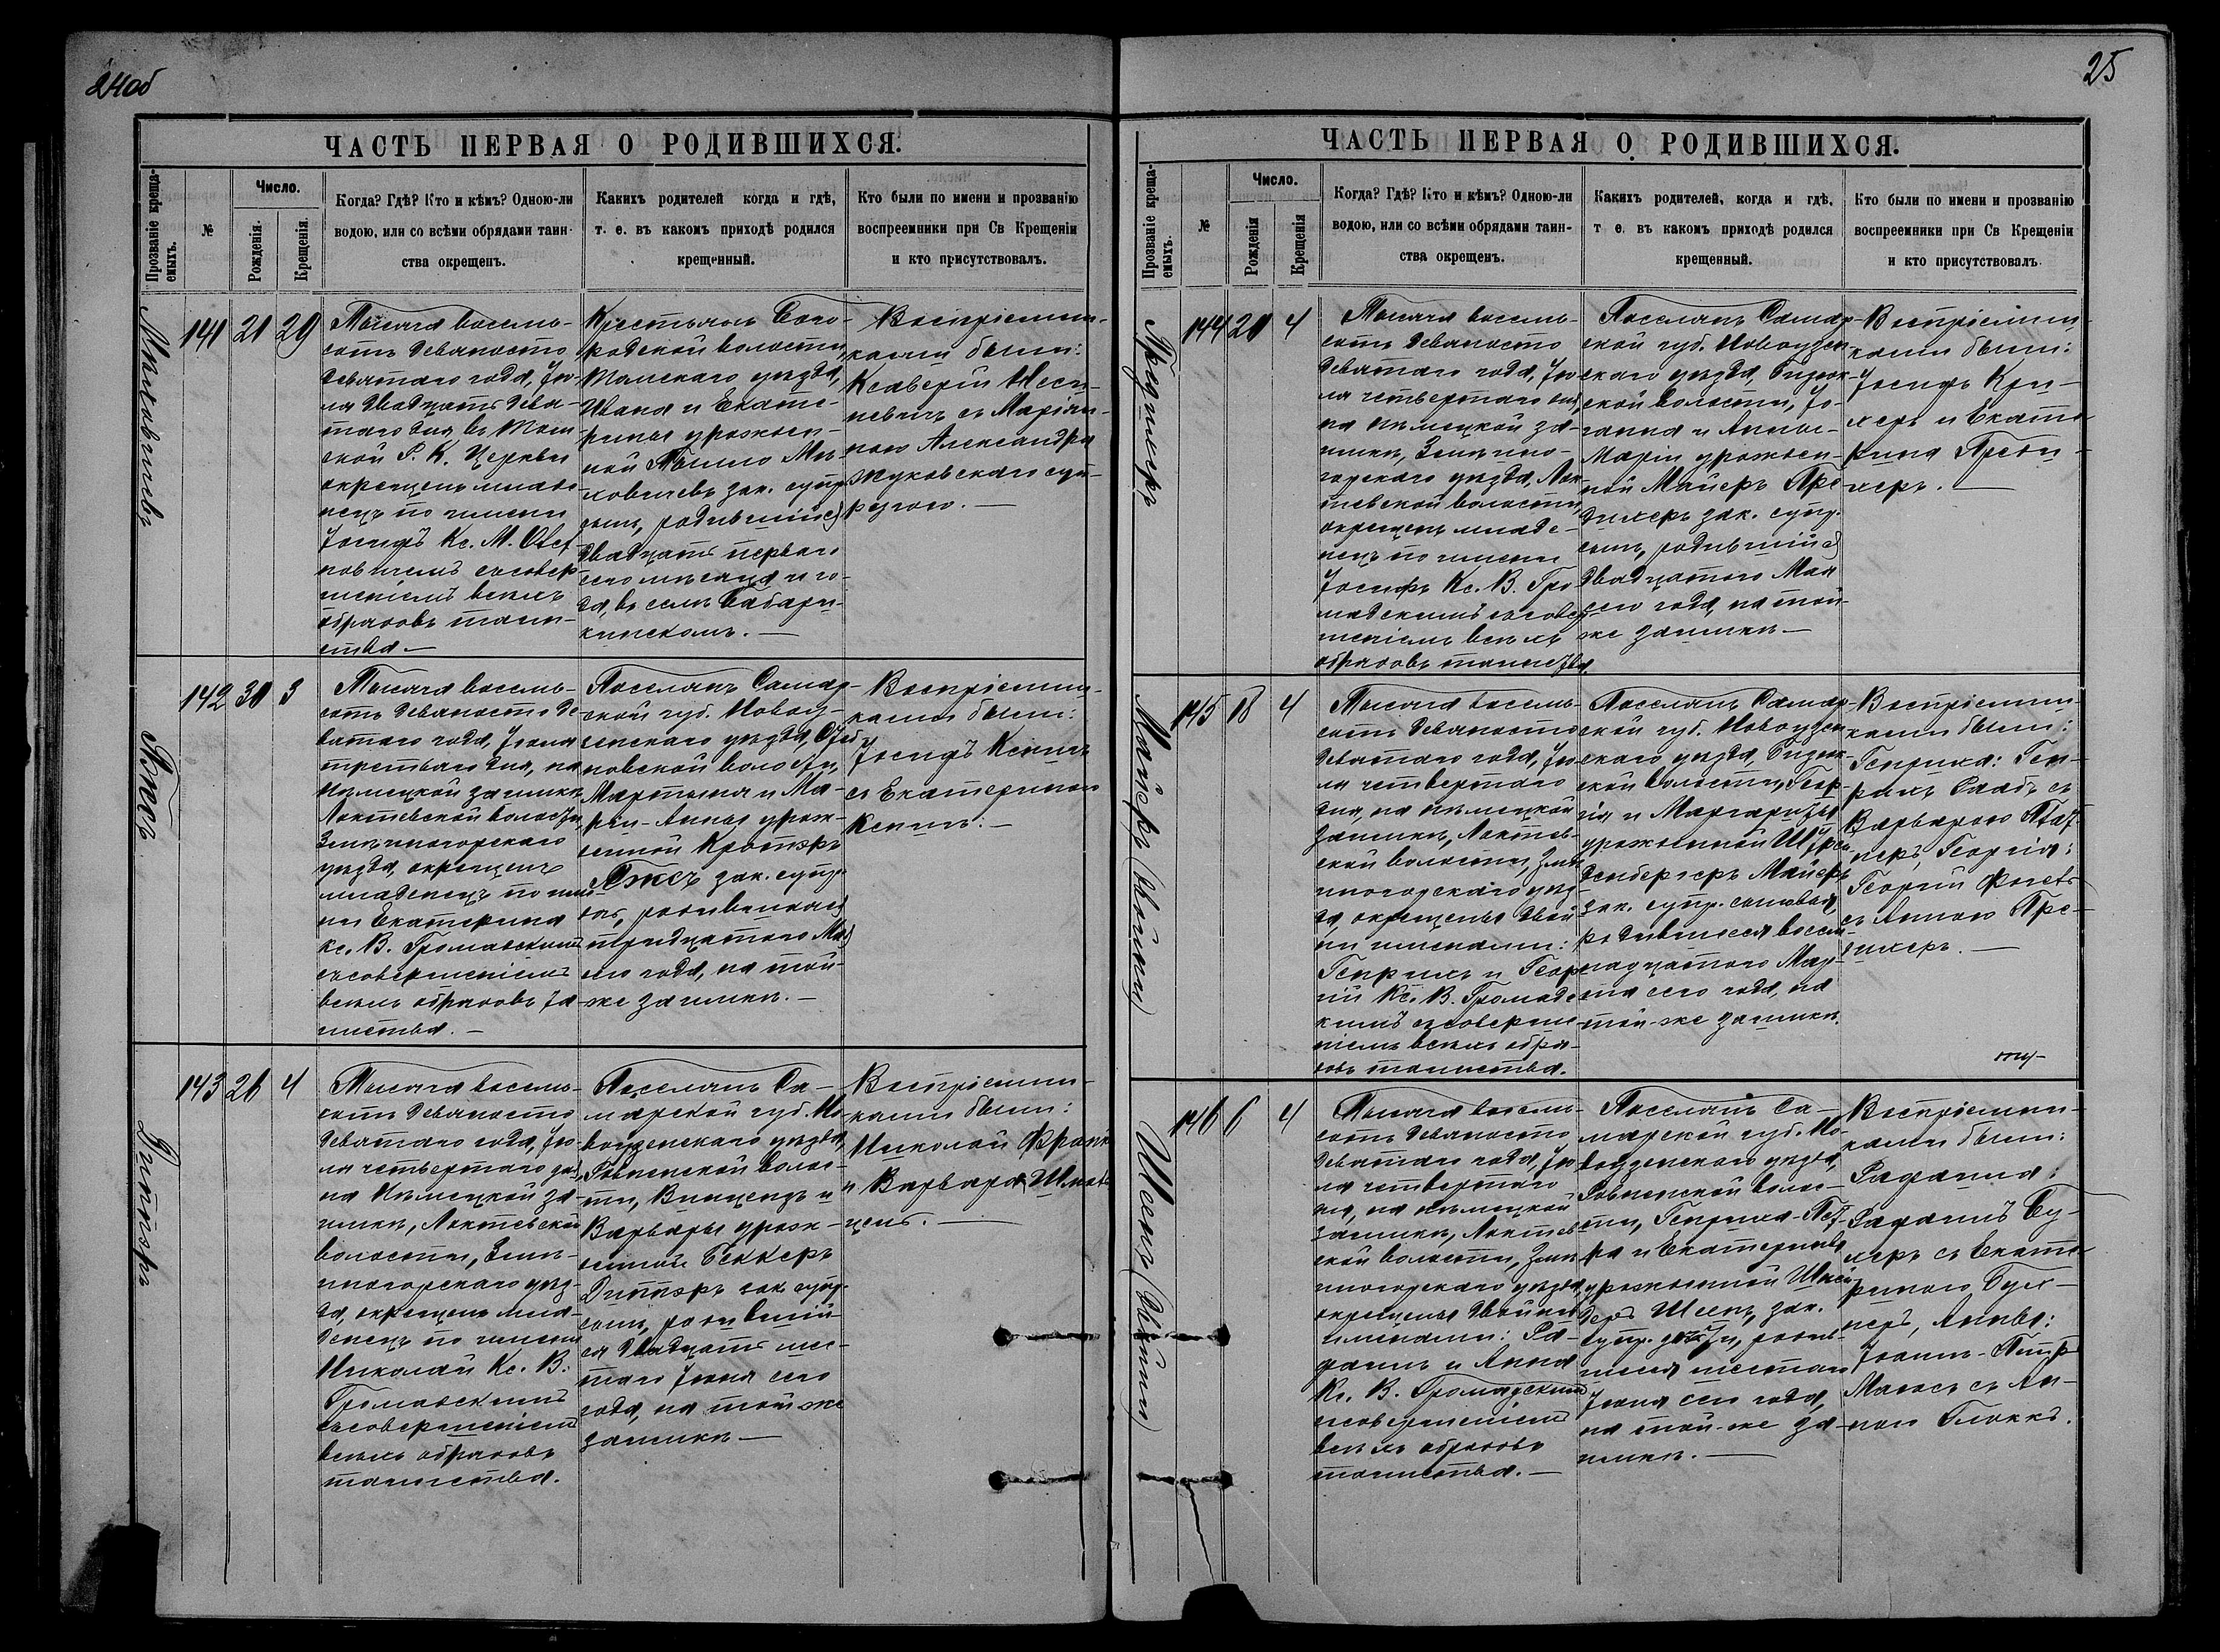 24об
ЧАСТЬ ПЕРВАЯ О РОДИВШИХСЯ.
Прозваніе креща-
емыхъ.
№
Число.
Рожденія.
Крещенія.
Когда? Гдѣ? Кто и кѣмъ? Одною-ли
водою, или со всѣми обрядами таин-
ства окрещенъ.
Какихъ родителей когда и гдѣ,
т. е. въ какомъ приходѣ родился
крещенный.
Кто были по имени и прозванію
воспреемники при Св Крещеніи
и кто присутствовалъ.
141 21 29
Тысяча восемь-
сотъ девяносто
девятаго года, Iю-
ня двадцать девя-
таго дня въ Том
ской Р. К. Церкви
окрещенъ младе
нецъ по имени
Іосифъ Кс. М.
съ совер-
шеніемъ всѣхъ
обрядовъ таин-
ства —
Крестьянъ Бого-
родской волости,
Томскаго уѣзда,
Ивана и Екате-
рины урожден-
ной
зак. супр
сынъ, родившійся
двадцать перваго
сего мѣсяца и го-
да, въ селѣ
—
Воспріемни-
ками были:
Ксаверій
съ Маріян-
ною Александра
Жуковскаго суп-
ругою. —
Бэкъ
142 30 3
Тысяча восемь-
сотъ девяносто де
вятаго года, Іюля
третьяго дня, на
Нѣмецкой заимкѣ
Локтевской волости
Змѣиногорскаго
уѣзда, окрещенъ
младенецъ по име-
ни Екатерина
Кс. В. Громадскимъ
съ совершеніемъ
всѣхъ обрядовъ та
инства. —
Поселянъ Самар-
ской губ. Новоу-
зенскаго уѣзда,
волости,
Мартына и Ма-
ріи-Анны урож-
денной
зак. супр.
дочь, родившаяся
тридцатаго Мая
сего года, на той-
же заимкѣ. —
Воспріемни-
ками были:
Іосифъ
съ Екатериною
—
Диппэръ
143 26 4
Тысяча восемь-
сотъ девяносто
девятаго года, Ію-
ля четвертаго дня,
на Нѣмецкой за-
имкѣ, Локтевской
волости, Змѣи-
ногорскаго уѣз-
да, окрещенъ мла-
денецъ по имени
Николай Кс. В.
Громадскимъ
съ совершеніемъ
всѣхъ обрядовъ
таинства.
Поселянъ Са-
марской губ. Но-
воузенскаго уѣзда,
Ровненской волос-
ти, Винцента и
Варвары урож-
денной Беккеръ
Диппэръ зак. супр.
сынъ, родившій-
ся двадцать шес-
таго Іюня сего
года, на той же
заимкѣ —
Воспріемни-
ками были:
Николай Франк
и Варвара
—
25
ЧАСТЬ ПЕРВАЯ О РОДИВШИХСЯ.
Прозваніе креща-
емыхъ.
№
Число.
Рожденія
Крещенія
Когда? Гдѣ? Кто и кѣмъ? Одною-ли
водою, или со всѣми обрядами таин-
ства окрещенъ.
Какихъ родителей, когда и гдѣ,
т е. въ какомъ приходѣ родился
крещенный.
Кто были по имени и прозванію
воспреемники при Св Крещеніи
и кто присутствовалъ.
144 20 4
Тысяча восемь-
сотъ девяносто
девятаго года, Ію-
ля четвертаго дня,
на Нѣмецкой за-
имкѣ, Змѣино-
горскаго уѣзда, Лок-
тевской волости,
окрещенъ младе-
нецъ по имени
Іосифъ Кс. В. Гро
мадскимъ съ совер-
шеніемъ всѣхъ
обрядовъ таинства.
Поселянъ Самар-
ской губ. Новоузен-
скаго уѣзда,
волости, Іо-
ганна и Анны-
Маріи урожден-
ной Майеръ
зак. супр.
сынъ, родившійся
двадцатаго Мая
сего года, на той-
же заимкѣ —
Воспріемни-
ками были:
Іосифъ Кри-
херъ и Екате-
рина
—
Майеръ (двойни)
145 18 4
Тысяча восемь-
сотъ девяносто
девятаго года, Ію-
ля четвертаго
дня, на Нѣмецкой
заимкѣ, Локтев-
ской волости, Змѣи
ногорскаго уѣз-
да, окрещены двой-
ни именами:
Генрихъ и Геор
гій Кс. В. Громадс
кимъ съ соверше
ніемъ всѣхъ обря-
довъ таинства.
Поселянъ Самар-
ской губ. Новоузен
скаго уѣзда,
волости, Геор-
гія и Маргариты
урожденной
Майеръ
зак. супр. сыновья,
родившіеся восем-
надцатаго Мар-
та сего года, на
той-же заимкѣ.
Воспріемни-
ками были:
Генриха: Ген-
рихъ съ
Варварою
Георгія:
Георгій
съ Анною
—
Шенъ (двойни)
146 6 4
Тысяча восемь-
сотъ девяносто
девятаго года, Ію-
ля четвертаго
дня, на Нѣмецкой
заимкѣ, Локтев
ской волости, Змѣи
ногорскаго уѣзда,
окрещены двойни
именами:
и Анна
Кс. В. Громадскимъ
съ совершеніемъ
всѣхъ обрядовъ
таинства. —
Поселянъ Са-
марской губ. Но-
воузенскаго уѣзда,
Ровненской волос-
ти, Генриха-Пет-
ра и Екатерины
урожденной
Шенъ, зак.
супр. дѣти, родив-
шіеся шестаго
Іюня сего года,
на той-же за-
имкѣ. —
Воспріемни-
ками были:
съ Екате-
риною
Анны:
съ Ан-
ною